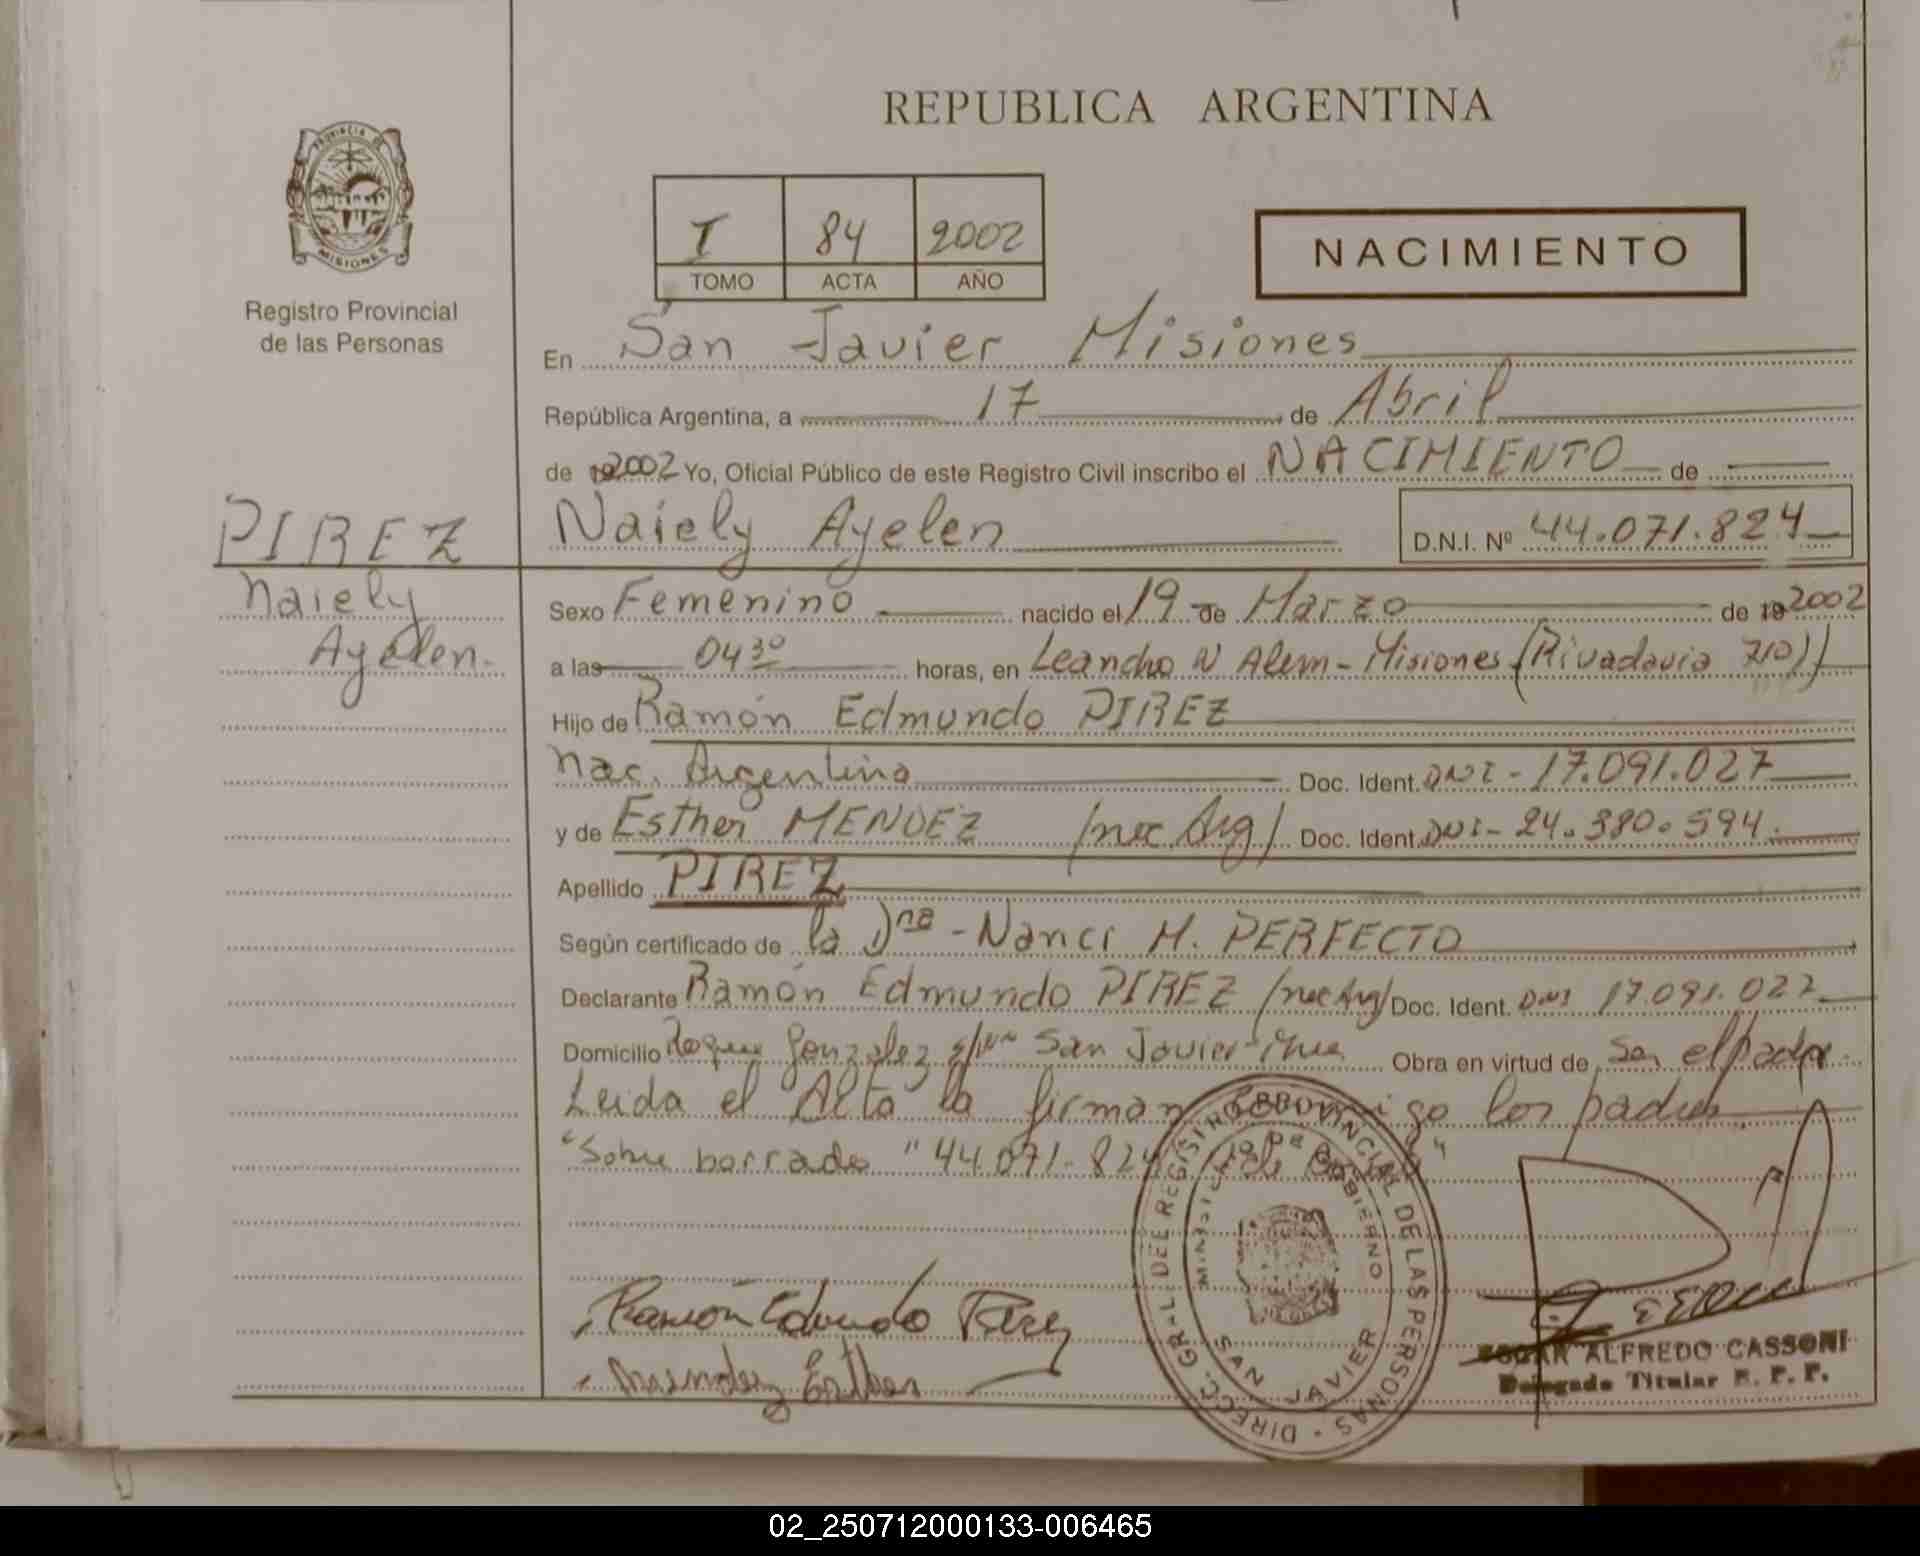 REPUBLICA ARGENTINA
PROVINCIA DE
MISIONES
Registro Provincial
de las Personas
I 84 2002
TOMO ACTA AÑO
NACIMIENTO
En San Javier Misiones
República Argentina, a 17 de Abril
de 2002 Yo, Oficial Público de este Registro Civil inscribo el NACIMIENTO de
PIREZ
Naiely Ayelen
Naiely Ayelen D.N.I. Nº 44.071.824
Sexo Femenino nacido el 19 de Marzo de 19 2002
a las 04 30 horas, en Leandro N Alem - Misiones (Rivadavia 710)
Hijo de Ramón Edmundo PIREZ
Nac. Argentina Doc. Ident. DNI - 17.091.027
y de Esther MENDEZ /nac Arg/ Doc. Ident. DNI - 24.380.594
Apellido PIREZ
Según certificado de la Dra - Nanci M. PERFECTO
Declarante Ramón Edmundo PIREZ /nac Arg/ Doc. Ident. DNI 17.091.027
Domicilio Roque Gonzalez San Javier Obra en virtud de Ser el padre
Leida el Acta la firman conmigo los padres
"Sobre borrado" 44.071.824
Ramón Edmundo Pirez
Mendez Esther
DIRECC. GRAL. DEL REGISTRO PROVINCIAL DE LAS PERSONAS
MINISTERIO DE GOBIERNO
SAN JAVIER
EDGAR ALFREDO CASSONI
Delegado Titular R. P. P.
02_250712000133-006465